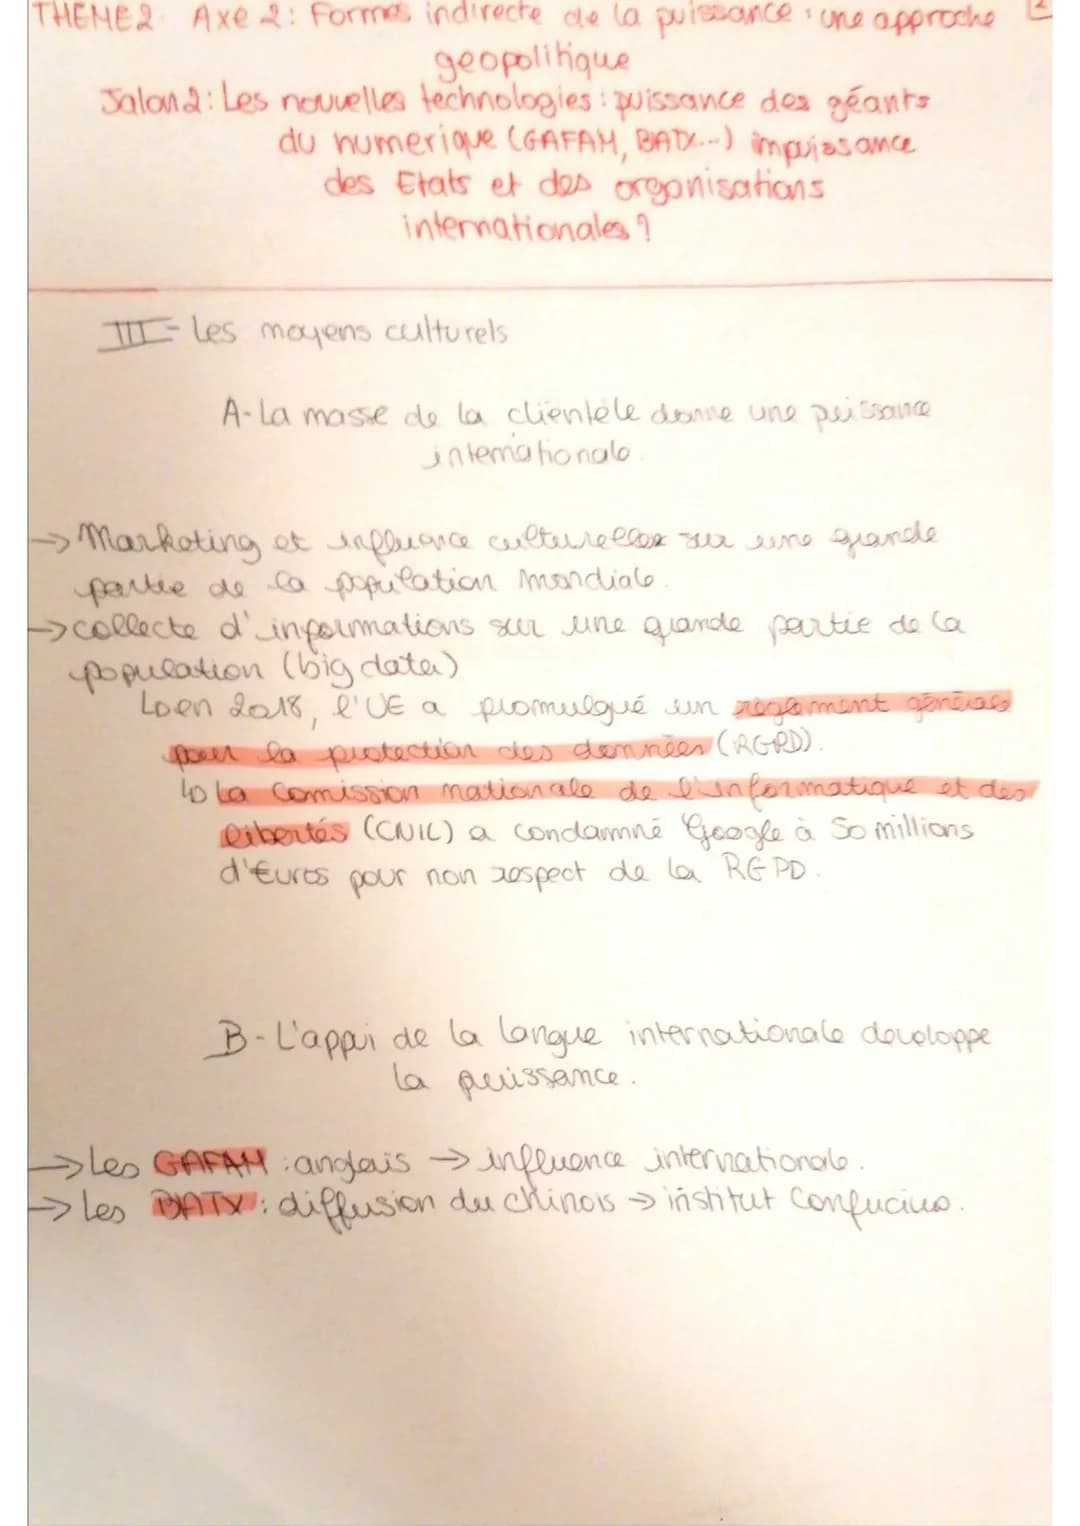 THEME2 Axe 2: Formes indirecte de la puissance : une approche
geopolitique
Jalon2: Les nouvelles technologies: puissance des géants
du numerique (GAFAM, BATX...) impuissance
des Etats et des organisations
internationales?
III- Les moyens culturels
A- La masse de la clientèle donne une puissance
internationale.
→ Marketing et influence culturelles sur une grande
partie de la population mondiale.
→ collecte d'informations sur une grande partie de la
population (big data)
↳ en 2018, l'UE a promulgué un règlement générale
pour la protection des données (RGPD).
↳ La Comission nationale de l'informatique et des
libertés (CNIL) a condamné Google à 50 millions
d'Euros pour non respect de la RGPD.
B- L'appui de la langue internationale developpe
la puissance.
→ Les GAFAM : anglais → influence internationale.
→ Les BATX : diffusion du chinois → institut Confucius.